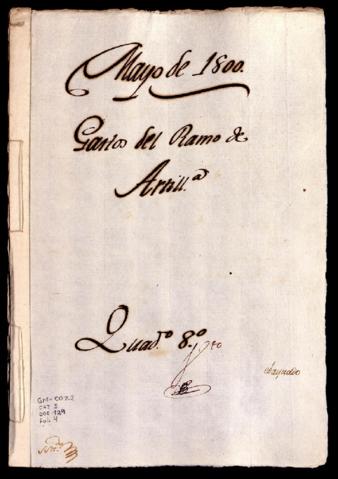 Mayo de 1800.
Gastos del Ramo de
Artill.ª
Quad.º 8.º
GM-0022
CAT 2
DOC 129
Fol. 4